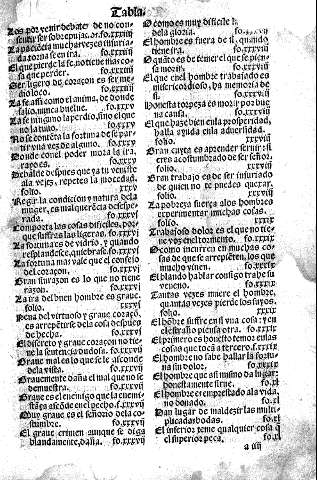 Tabla.
Los por venir debates de no con
sentir ser sobrepujas. or. fo. xxxiij
La paciẽcia muchas vezes injuria
da torna se en yra. fo. xxxiij
El que pierde la fe, no tiene mas co
sa que perder. fo. xxxiij
Ser ligero de coraçon es ser me
dio loco. fo.
La fe assi como el anima, de donde
salio, nunca buelue. fo. xxxv
La fe ninguno la perdio, sino el que
no la tuuo. fo. xxxv
No se contẽta la fortuna desepar
tir vna vez de alguno. fo. xxxv
Donde con el poder mora la ira,
rayo es. fo. xxxv
De balde despues que ya tu veniste
ala vejez, repetes la mocedad.
folio. xxxv
Regir la condicion y natura dela
muger, es mal querẽcia desepe-
rada. fo. xxxvj
Comporta las cosas dificiles, por-
que suffras las ligeras. fo. xxxvj
La fortuna es de vidrio, y quando
resplandesce, quiebrase. fo. xxxvj
La fortuna mas vale que el consejo
del coraçon. fo. xxxvj
Gran sinrazon es lo que no tiene
razon. fo. xxxvj
La ira del buen hombre es graue.
folio. xxxvj
Pena del virtuoso y graue coraçõ,
es arrepẽtirse dela cosa despues
de hecha. fo. xxxvj
El discreto y graue coraçon no tie-
ne la sentencia dudosa. fo. xxxvij
Graue mal es lo que se le asconde
dela vista. fo. xxxvij
Grauemente daña el mal que no se
demuestra. fo. xxxvij
Graue es el enemigo que la enemi
stad ascõde en el pecho. f. xxxvij
Muy graue es el señorio dela co-
stumbre. fo. xxxvij
El graue crimen aunque se diga
blandamente, daña. fo. xxxvij
O como es muy difficile la
dela gloria. fo. xxxvij
El hombre es fuera de si, quando
tiene ira. fo. xxxvij
O quãto es de temer el que se pien
sa morir. fo. xxxviij
El que enel hombre trabajado es
misericordioso, ha memoria de
si.
Honesta torpeza es morir por bue
na causa. fo. xxxviij
El que haze bien enla prosperidad,
halla ayuda enla aduersidad.
folio. xxxviij
Gran cuyta es aprender seruir si
eres acostumbrado de ser señor.
folio. xxxviij
Gran trabajo es de ser injuriado
de quien no te puedes quexar.
folio. xxxviij
La pobreza fuerça alos hombres
experimentar muchas cosas.
folio.
Trabajoso dolor es el que no tie-
ne voz en el tormento. fo. xxxix
O como incurren en muchas co-
sas de que se arrepiẽten, los que
mucho viuen. fo. xxxix
El blando hablar consigo trahe su
veneno. fo. xxxix
Tantas vezes muere el hombre,
quantas vezes pierde los suyos.
folio. xxxix
El hõbre suffre en si vna cosa: y en
el estraño piensa otra. fo. xxxix
El primero es honesto temer en las
cosas que tocã a tercero. f. xxxix
El hombre no sabe hallar la fortu-
na sin dolor. fo. xxxix
El hombre que assi mismo da lugar:
honestamente sirue. fo. xl
El hombre es emprestado ala vida,
no donado. fo. xl
Dan lugar de maldezir las multi-
plicadas bodas. fo. xl
El inferior teme qualquier cosa q̃
el superior peca. fo. xl
a iiij